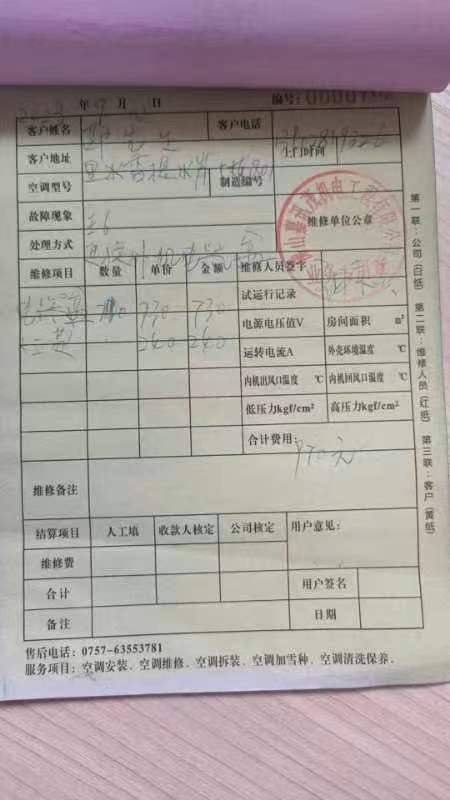 年 9 月 日 编号:
客户姓名 先生 客户电话
客户地址 里水香提水岸 上门时间
空调型号 制造编号
故障现象 E6 维修单位公章
处理方式 外机电器盒
维修项目 数量 单价 金额 维修人员签字
电器盒 730 730 试运行记录
人工费 240 240 电源电压值V 房间面积 m²
运转电流A 外壳环境温度 ℃
内机出风口温度 ℃ 内机回风口温度 ℃
低压力kgf/cm² 高压力kgf/cm²
合计费用: 970元
维修备注
结算项目 人工填 收款人核定 公司核定 用户意见:
维修费
合计 用户签名
备注 日期
售后电话: 0757-63553781
服务项目: 空调安装、空调维修、空调拆装、空调加雪种、空调清洗保养.
第一联:公司(白纸) 第二联:维修人员(红纸) 第三联:客户(黄纸)